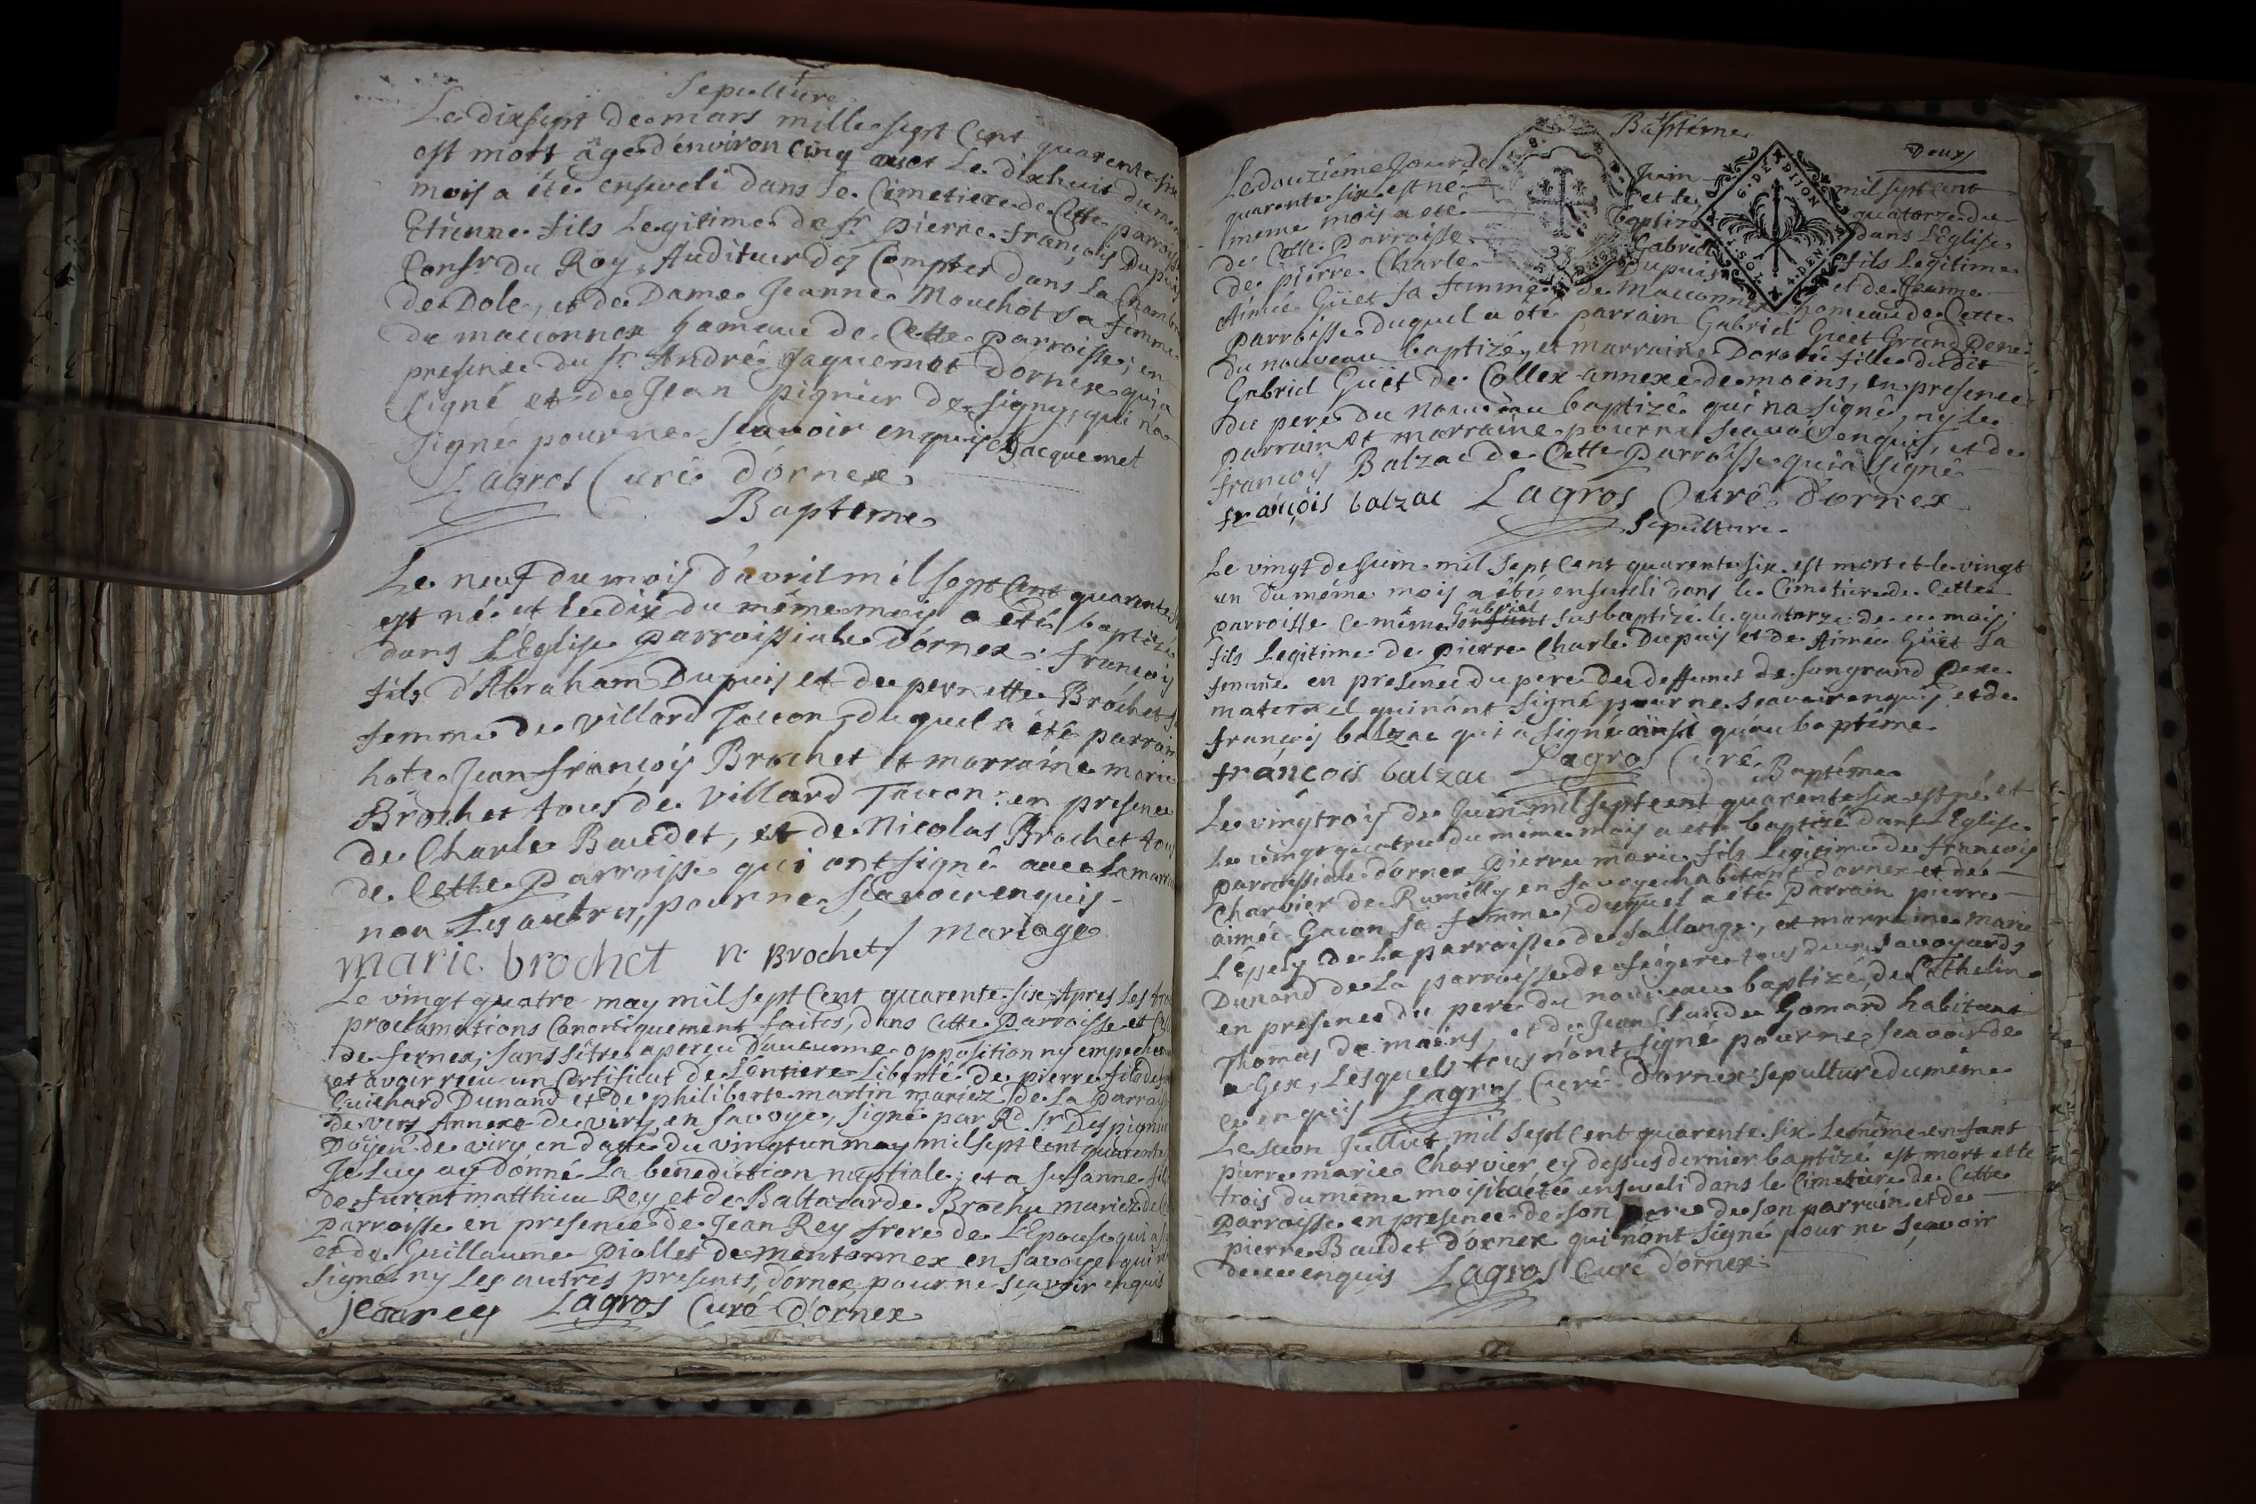 Sepulture
Le dixsept de mars mille sept Cent quarente six
est mort âgé d'environ cinq Le dixhuit du meme
mois a été enseveli dans le Cimetiere de Cette parroisse
Etienne fils Legitime de Sr. pierre françois Dupuis
Consr du Roy, Auditeur des Comptes dans La Chambre
de Dole, et de Dame Jeanne Mouchot sa femme
de maconnex hameau de Cette parroisse, en
presence du Sr. André Jaquemet Dornex qui a
signé et de Jean pignier de signy, qui na
signé pour ne sçavoir enquis Jacquemet
Lagros Curé dornex
Bapteme
Le neuf du mois d'avril mil sept Cent quarente
est né et le dix du même mois a été baptizé
dans L'Eglise parroissiale d'ornex: françois
fils d'Abraham Dupuis et de pernette Brochet sa
femme de villard Tacon, duquel a été parrain
hote Jean françois Brochet et marraine marie
Brochet tous de villard Tacon: en presence
de Charle Baudet, et de Nicolas Brochet tous
de Cette parroisse qui ont signé avec la marraine
non Les autres, pour ne sçavoir enquis
marie brochet n. Brochet mariage
Le vingt quatre may mil sept Cent quarente six Apres Les trois
proclamations Canoniquement faites, dans Cette parroisse et
de fernex, sans s'être aperceu d'aucunne opposition ny empechement
et avoir receu un Certificat de L'entiere Liberté de pierre fils de
Guichard Dunand et de philiberte martin mariez de La parroisse
de vers Annexe de viry en savoye, signé par Rd. Sr. Despignie
Doijen de viry en datte du vingt un may mil sept Cent quarente
Je Luy ay donné La bénédiction nuptiale; et a susanne fille
de furent matthieu Rey et de Baltazarde Brochu mariez de
parroisse en presence de Jean Rey frere de L'Epouse qui a
et de Guillaume piollet de mentonnex en savoye qui n'a
signé ny Les autres presents, d'ornex pour ne sçavoir enquis
jean rey Lagros Curé d'ornex
Baptéme
Deux
Le douziéme Jour de Juin mil sept cent
quarente six est né et le quatorze du
meme mois a eté baptizé dans L'Eglise
de Cette parroisse Gabriel fils Legitime
de pierre Charle Dupuis et de Jeanne
Aimée Güet sa femme de Maconnex hameau de Cette
parroisse duquel a eté parrain Gabriel Güet Grand pere
du nouveau baptizé, et marraine Dorotée fille dudit
Gabriel Güet de Collex annexe de moëns, en presence
du pere du nouveau baptizé qui na signé, ny le
parrain et marraine pour ne sçavoir enquis, et de
françois Balzac de Cette parroisse qui a signé
françois balzac Lagros Curé d'ornex
Sepulture
Le vingt de Juin mil sept Cent quarente six est mort et le vingt
un du même mois a été enseveli dans le Cimetiere de Cette
parroisse Ce même enfant Gabriel sus baptizé le quatorze de ce mois,
fils Legitime de pierre Charle Dupuis et de Aimée Güet sa
femme en presence du pere du deffunct de son grand pere
maternel qui n'ont signé pour ne scavoir enquis, et de
françois balzac qui a signé ainsi qu'au baptéme
françois balzac Lagros Curé Baptéme
Le vingtrois de Juin mil sept cent quarente six est né, et
Le vingt quatre du même mois a eté baptizé dans L'Eglise
parroissiale d'ornex pierre marie fils Legitime de françois
Charvier de Rumilly en savoye habitant d'ornex et de
aimée Gacon sa femme, duquel a eté parrain pierre
L'Epely de La parroisse de Sallange, et marraine marie
Dunand de La parroisse de feigere tous deux savoyards
en presence du pere du nouveau baptizé, de Cathelin
Thomas de moens, et de Jean Claude Gomard habitant
a Gex, Lesquels tous n'ont signé pour ne sçavoir de
ce enquis Lagros Curé D'ornex: sepulture du même
Le Juilliet mil sept Cent quarente six Le même enfant
pierre marie Charvier cy dessus dernier baptizé est mort et le
trois du même mois il a été enseveli dans le Cimetiere de Cette
parroisse en presence de son pere de son parrain, et de
pierre Baudet d'ornex qui n'ont signé pour ne sçavoir
de ce enquis Lagros Curé d'ornex
G. DE DIJON
SOL DEN